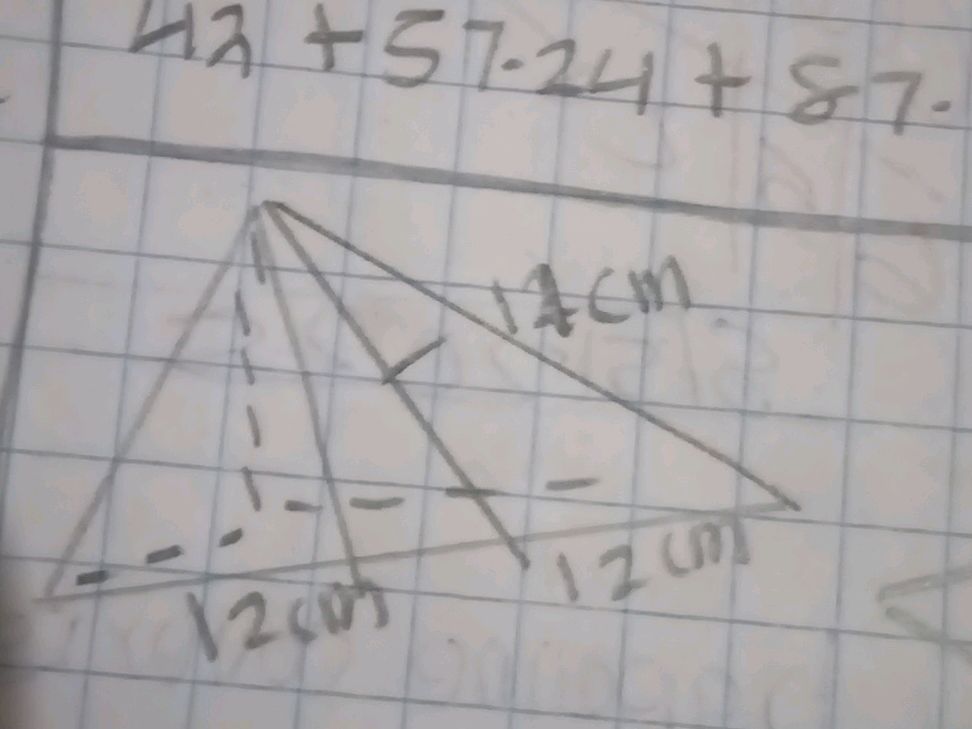 42 + 57.24 + 87.
cm
12cm
12cm